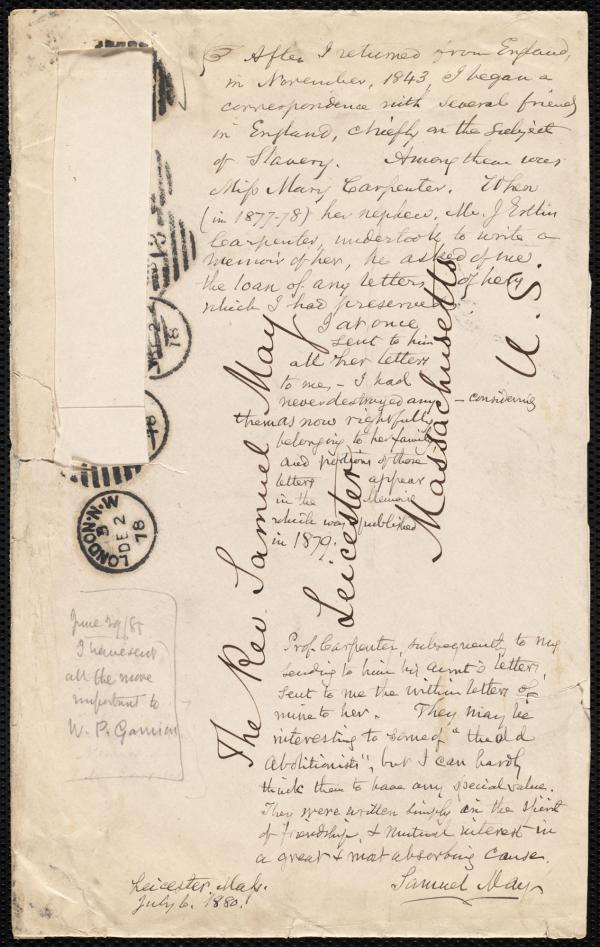 After I returned from England,
in November, 1843, I began a
correspondence with several friends
in England, chiefly on the subject
of Slavery. Among them was
Miss Mary Carpenter. When
(in 1877-78) her nephew, Mr. J Estlin
Carpenter, undertook to write a
memoir of her, he asked of me
the loan of any letters of hers
which I had preserved.
I at once
sent to him
all her letters
to me, - I had
never destroyed any - considering
them as now rightfully
belonging to her family
and portions of those
letters appear
in the Memoir
which was published
in 1879.
The Rev. Samuel May
Leicester
Massachusetts
U. S.
DE 2
78
78
LONDON·N.W
DE 2
78
June 29/85
I have sent
all the more
important to
W. P. Garrison
Prof. Carpenter, subsequently to my
sending to him his aunt's letters,
sent to me the within letters of
mine to her. They may be
interesting to some of "the old
Abolitionists", but I can hardly
think them to have any special value.
They were written simply in the spirit
of friendship, & mutual interest in
a great & most absorbing cause.
Samuel May
Leicester, Mass.
July 6. 1880.